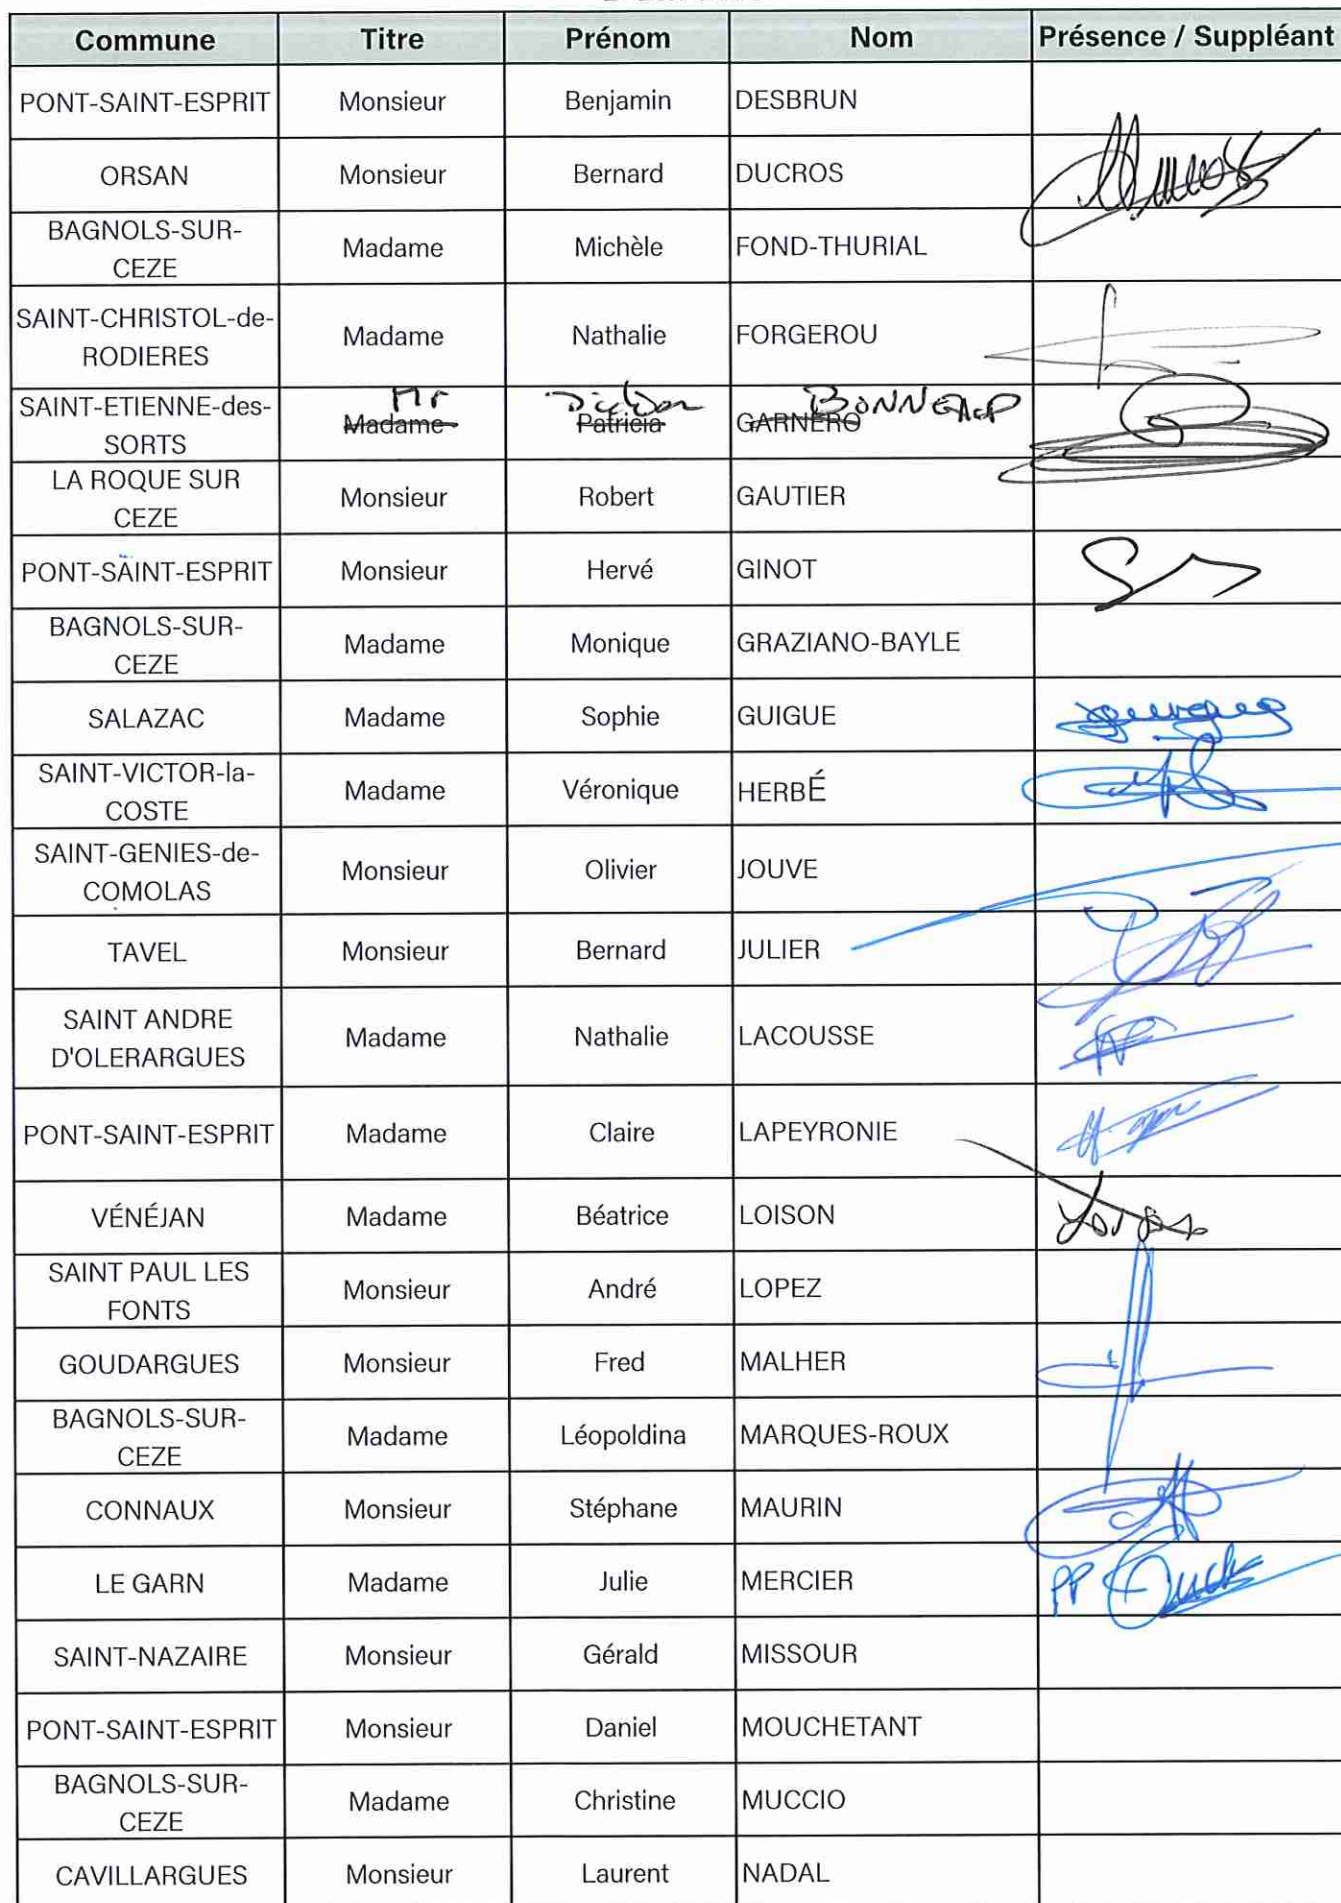 Commune Titre Prénom Nom Présence / Suppléant
PONT-SAINT-ESPRIT Monsieur Benjamin DESBRUN
ORSAN Monsieur Bernard DUCROS
BAGNOLS-SUR-
CEZE Madame Michèle FOND-THURIAL
SAINT-CHRISTOL-de-
RODIERES Madame Nathalie FORGEROU
Mr
SAINT-ETIENNE-des-
SORTS Madame Patricia GARNERO
LA ROQUE SUR
CEZE Monsieur Robert GAUTIER
PONT-SAINT-ESPRIT Monsieur Hervé GINOT
BAGNOLS-SUR-
CEZE Madame Monique GRAZIANO-BAYLE
SALAZAC Madame Sophie GUIGUE
SAINT-VICTOR-la-
COSTE Madame Véronique HERBÉ
SAINT-GENIES-de-
COMOLAS Monsieur Olivier JOUVE
TAVEL Monsieur Bernard JULIER
SAINT ANDRE
D'OLERARGUES Madame Nathalie LACOUSSE
PONT-SAINT-ESPRIT Madame Claire LAPEYRONIE
VÉNÉJAN Madame Béatrice LOISON
SAINT PAUL LES
FONTS Monsieur André LOPEZ
GOUDARGUES Monsieur Fred MALHER
BAGNOLS-SUR-
CEZE Madame Léopoldina MARQUES-ROUX
CONNAUX Monsieur Stéphane MAURIN
LE GARN Madame Julie MERCIER PP
SAINT-NAZAIRE Monsieur Gérald MISSOUR
PONT-SAINT-ESPRIT Monsieur Daniel MOUCHETANT
BAGNOLS-SUR-
CEZE Madame Christine MUCCIO
CAVILLARGUES Monsieur Laurent NADAL